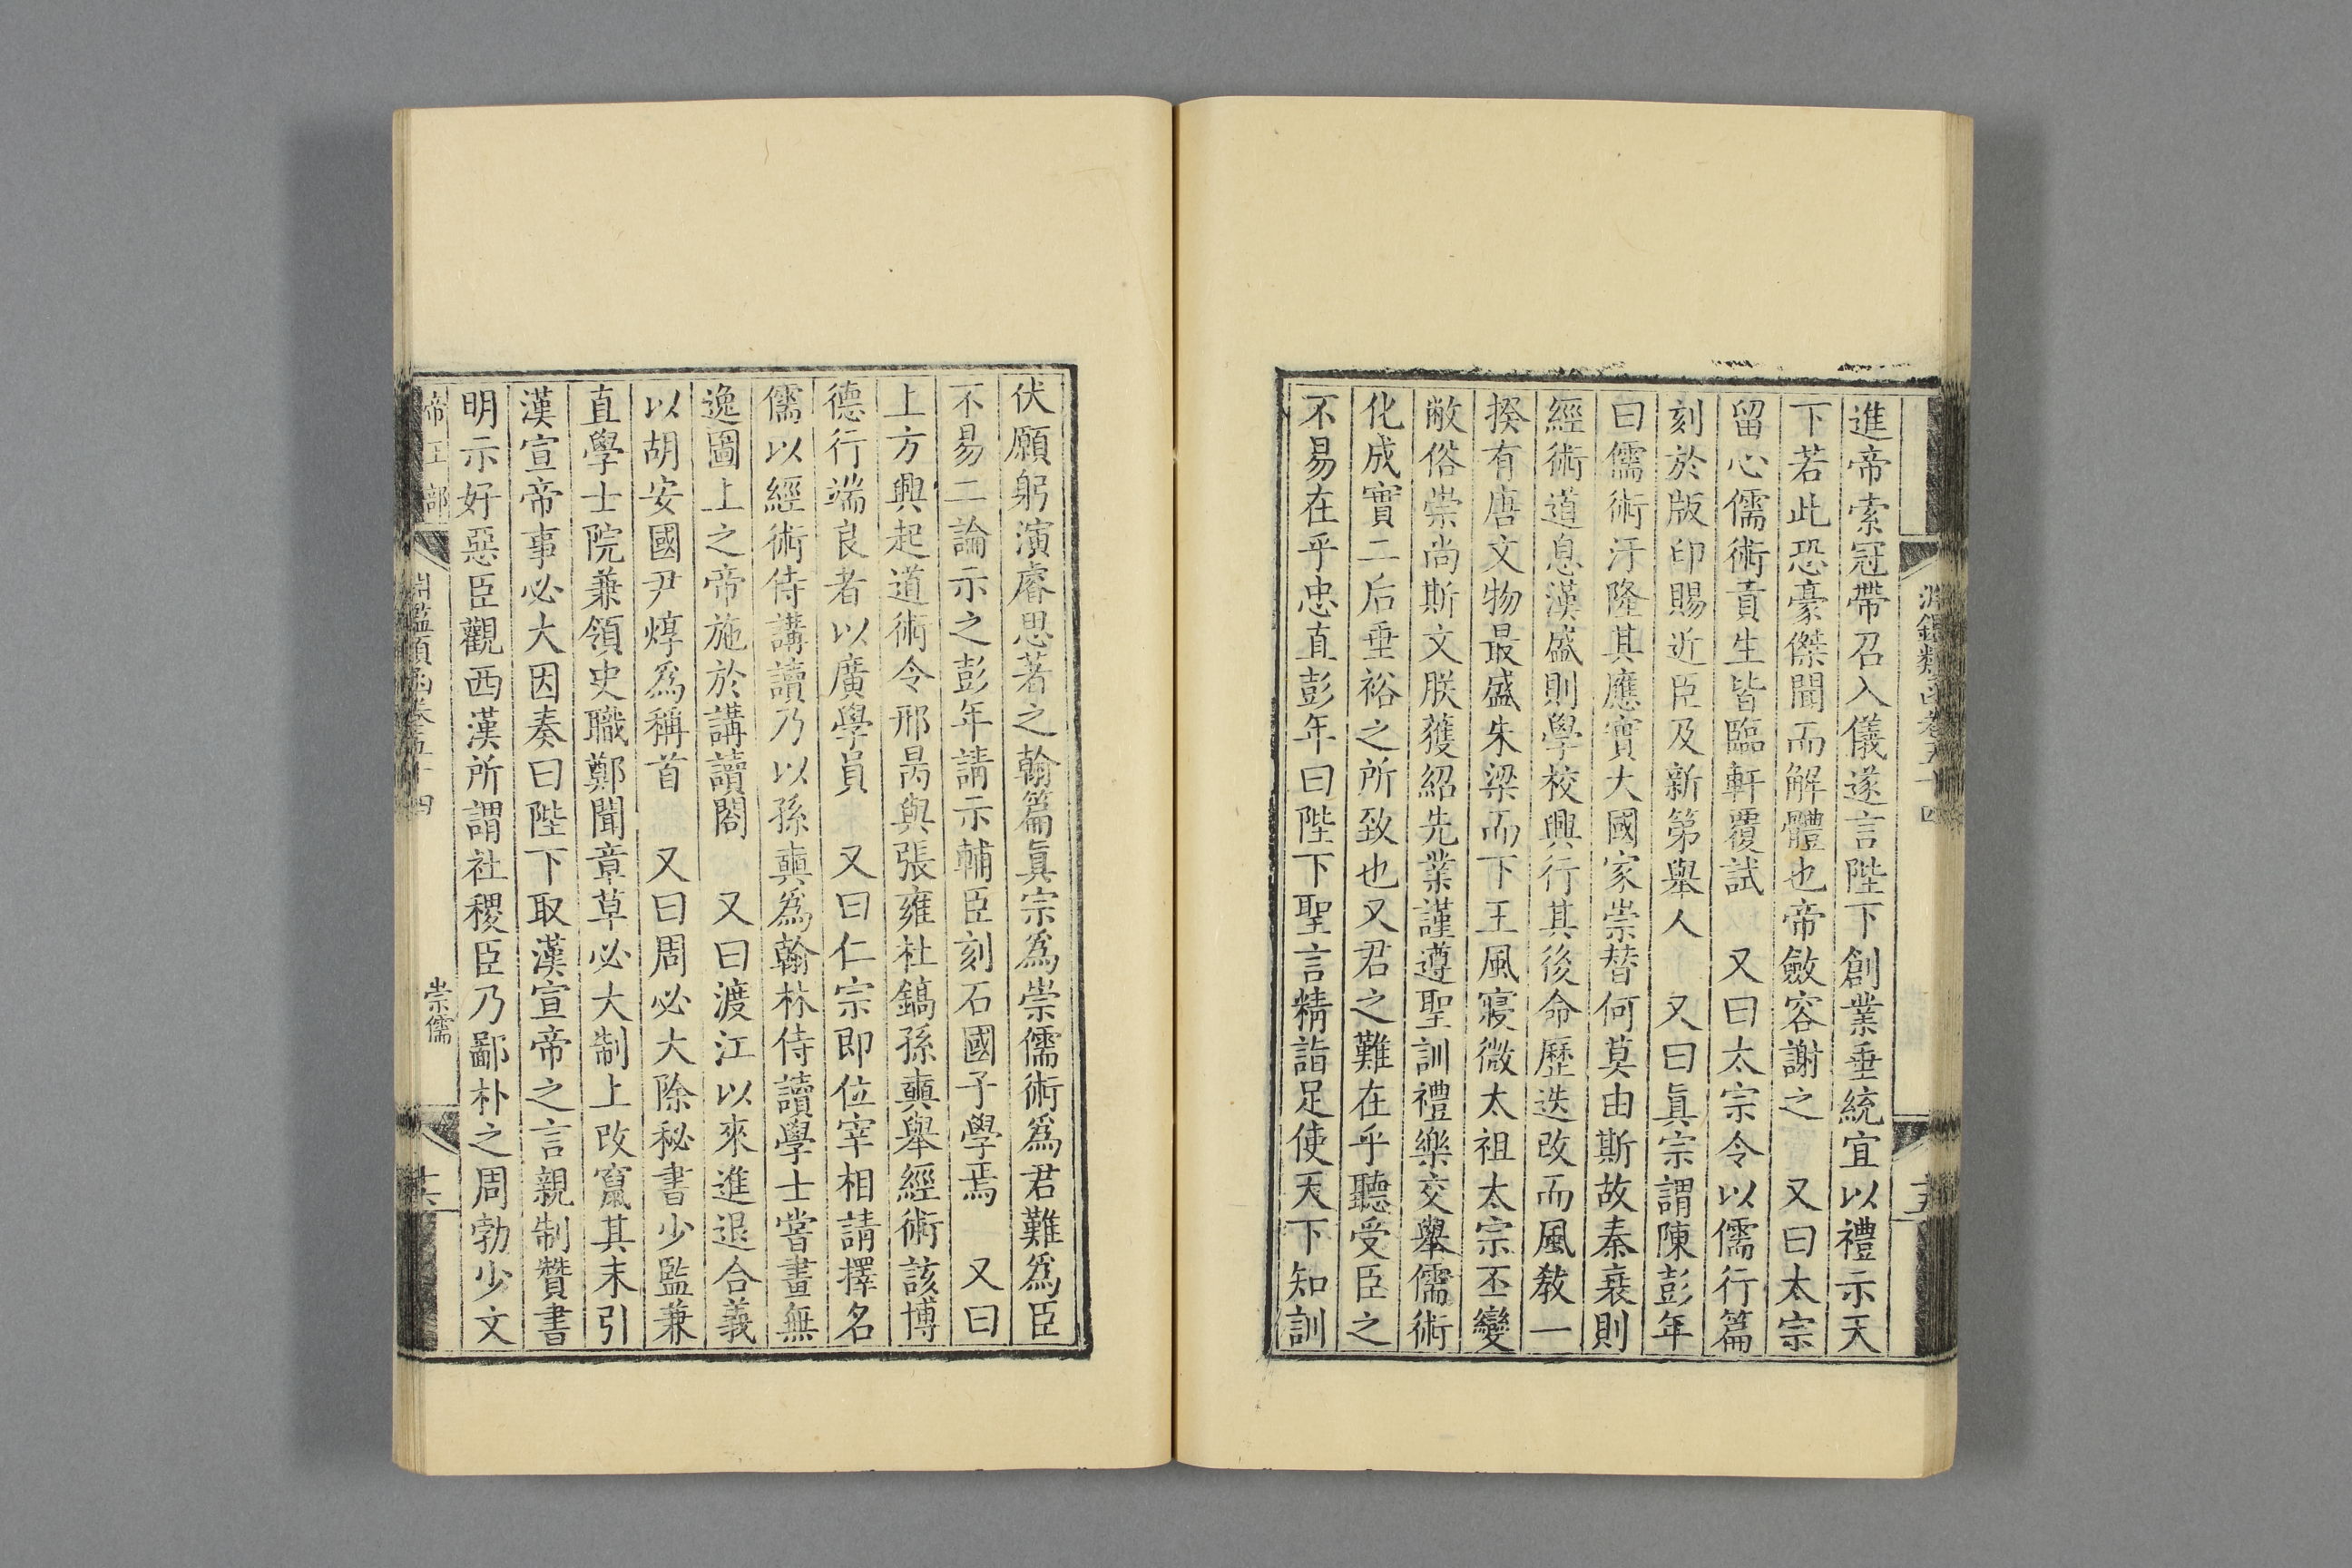 淵鑑類函卷五十四
進帝索冠帶召入儀遂言陛下創業垂統宜以禮示天
下若此恐豪傑聞而解體也帝斂容謝之　又曰太宗
留心儒術貢生皆臨軒覆試　又曰太宗令以儒行篇
刻於版印賜近臣及新第舉人　又曰眞宗謂陳彭年
曰儒術汙隆其應實大國家崇替何莫由斯故秦衰則
經術道息漢盛則學校興行其後命歷迭改而風教一
揆有唐文物最盛朱梁而下王風寖微太祖太宗丕變
敝俗崇尚斯文朕獲紹先業謹遵聖訓禮樂交舉儒術
化成實二后垂裕之所致也又君之難在乎聽受臣之
不易在乎忠直彭年曰陛下聖言精詣足使天下知訓
伏願躬演睿思著之翰篇眞宗爲崇儒術爲君難爲臣
不易二論示之彭年請示輔臣刻石國子學焉　又曰
上方興起道術令邢昺與張雍杜鎬孫奭舉經術該博
德行端良者以廣學員　又曰仁宗即位宰相請擇名
儒以經術侍講讀乃以孫奭爲翰林侍讀學士嘗畫無
逸圖上之帝施於講讀閣　又曰渡江以來進退合義
以胡安國尹焞爲稱首　又曰周必大除秘書少監兼
直學士院兼領史職鄭聞章草必大制上改竄其末引
漢宣帝事必大因奏曰陛下取漢宣帝之言親制贊書
明示好惡臣觀西漢所謂社稷臣乃鄙朴之周勃少文
帝王部
淵鑑類函卷五十四
崇儒